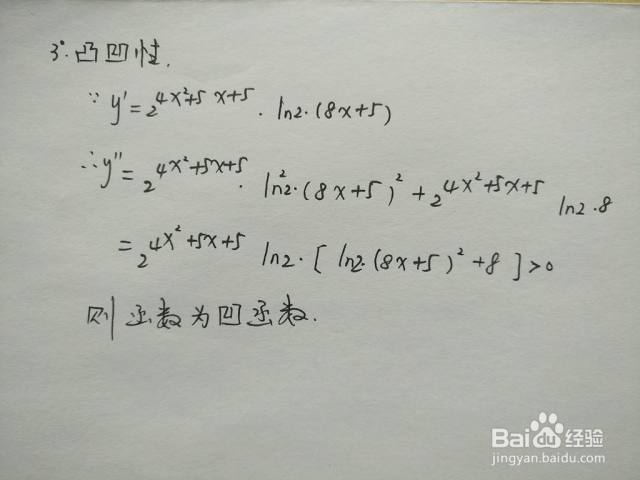 3°.凸凹性.
∵ y'=2^{4x²+5x+5}·ln2·(8x+5)
∴y''=2^{4x²+5x+5}·ln²2·(8x+5)²+2^{4x²+5x+5} ln2·8
=2^{4x²+5x+5} ln2·[ln2·(8x+5)²+8]>0
则函数为凹函数.
Baidu经验
jingyan.baidu.com